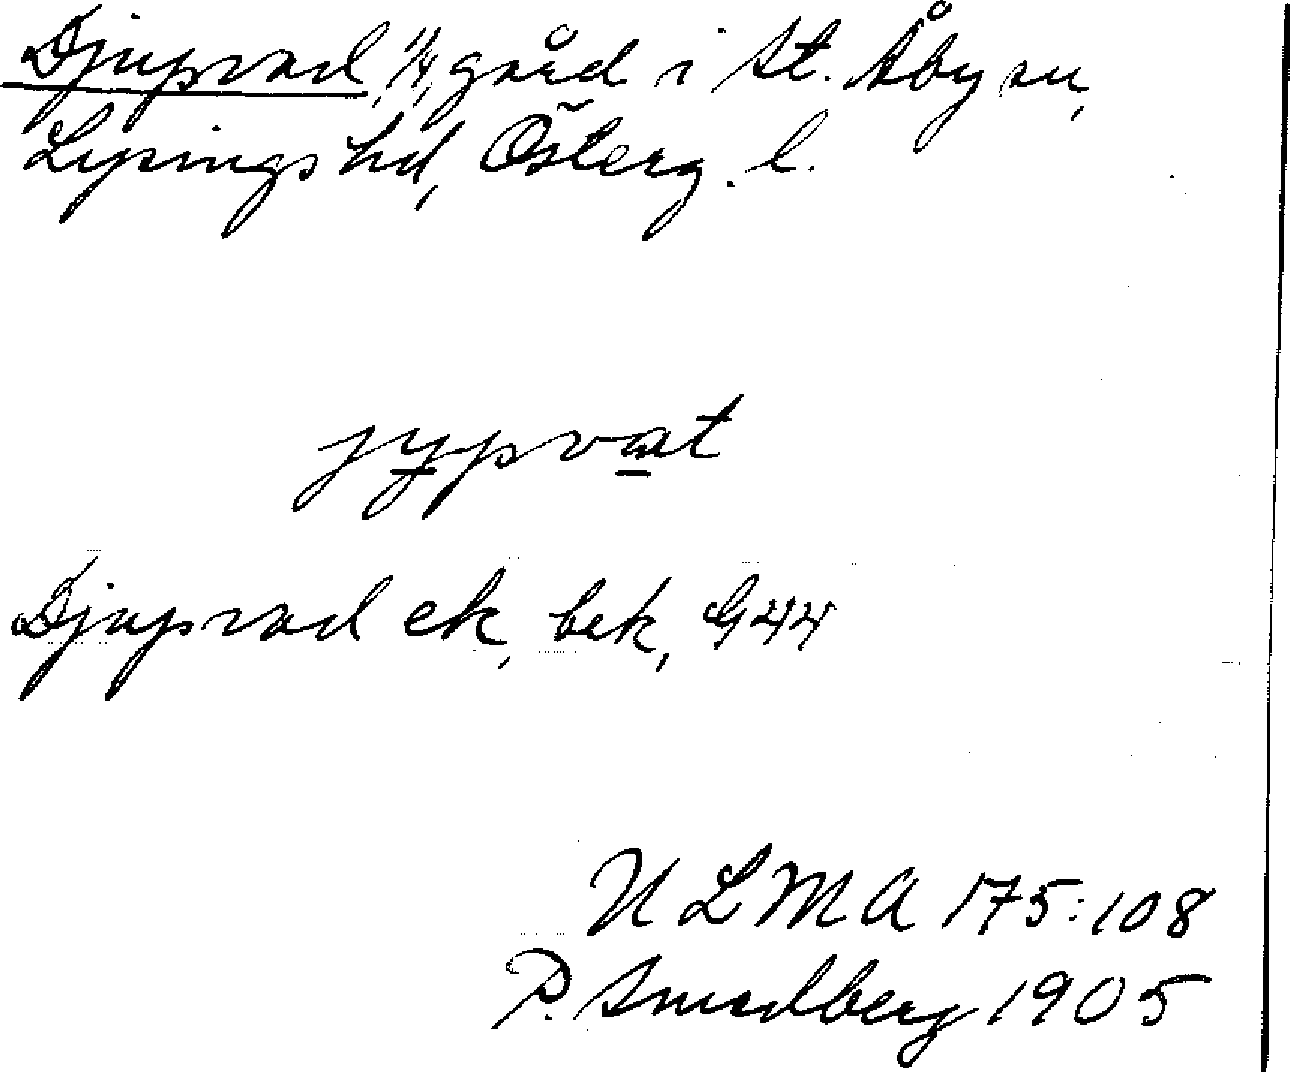 Djupvad, 1/4, gård i St. Åby sn,
Lysings hd, Österg. l.
jypvat
Djupvad ek, bek, G44
ULMA 175:108
P. Smedberg 1905